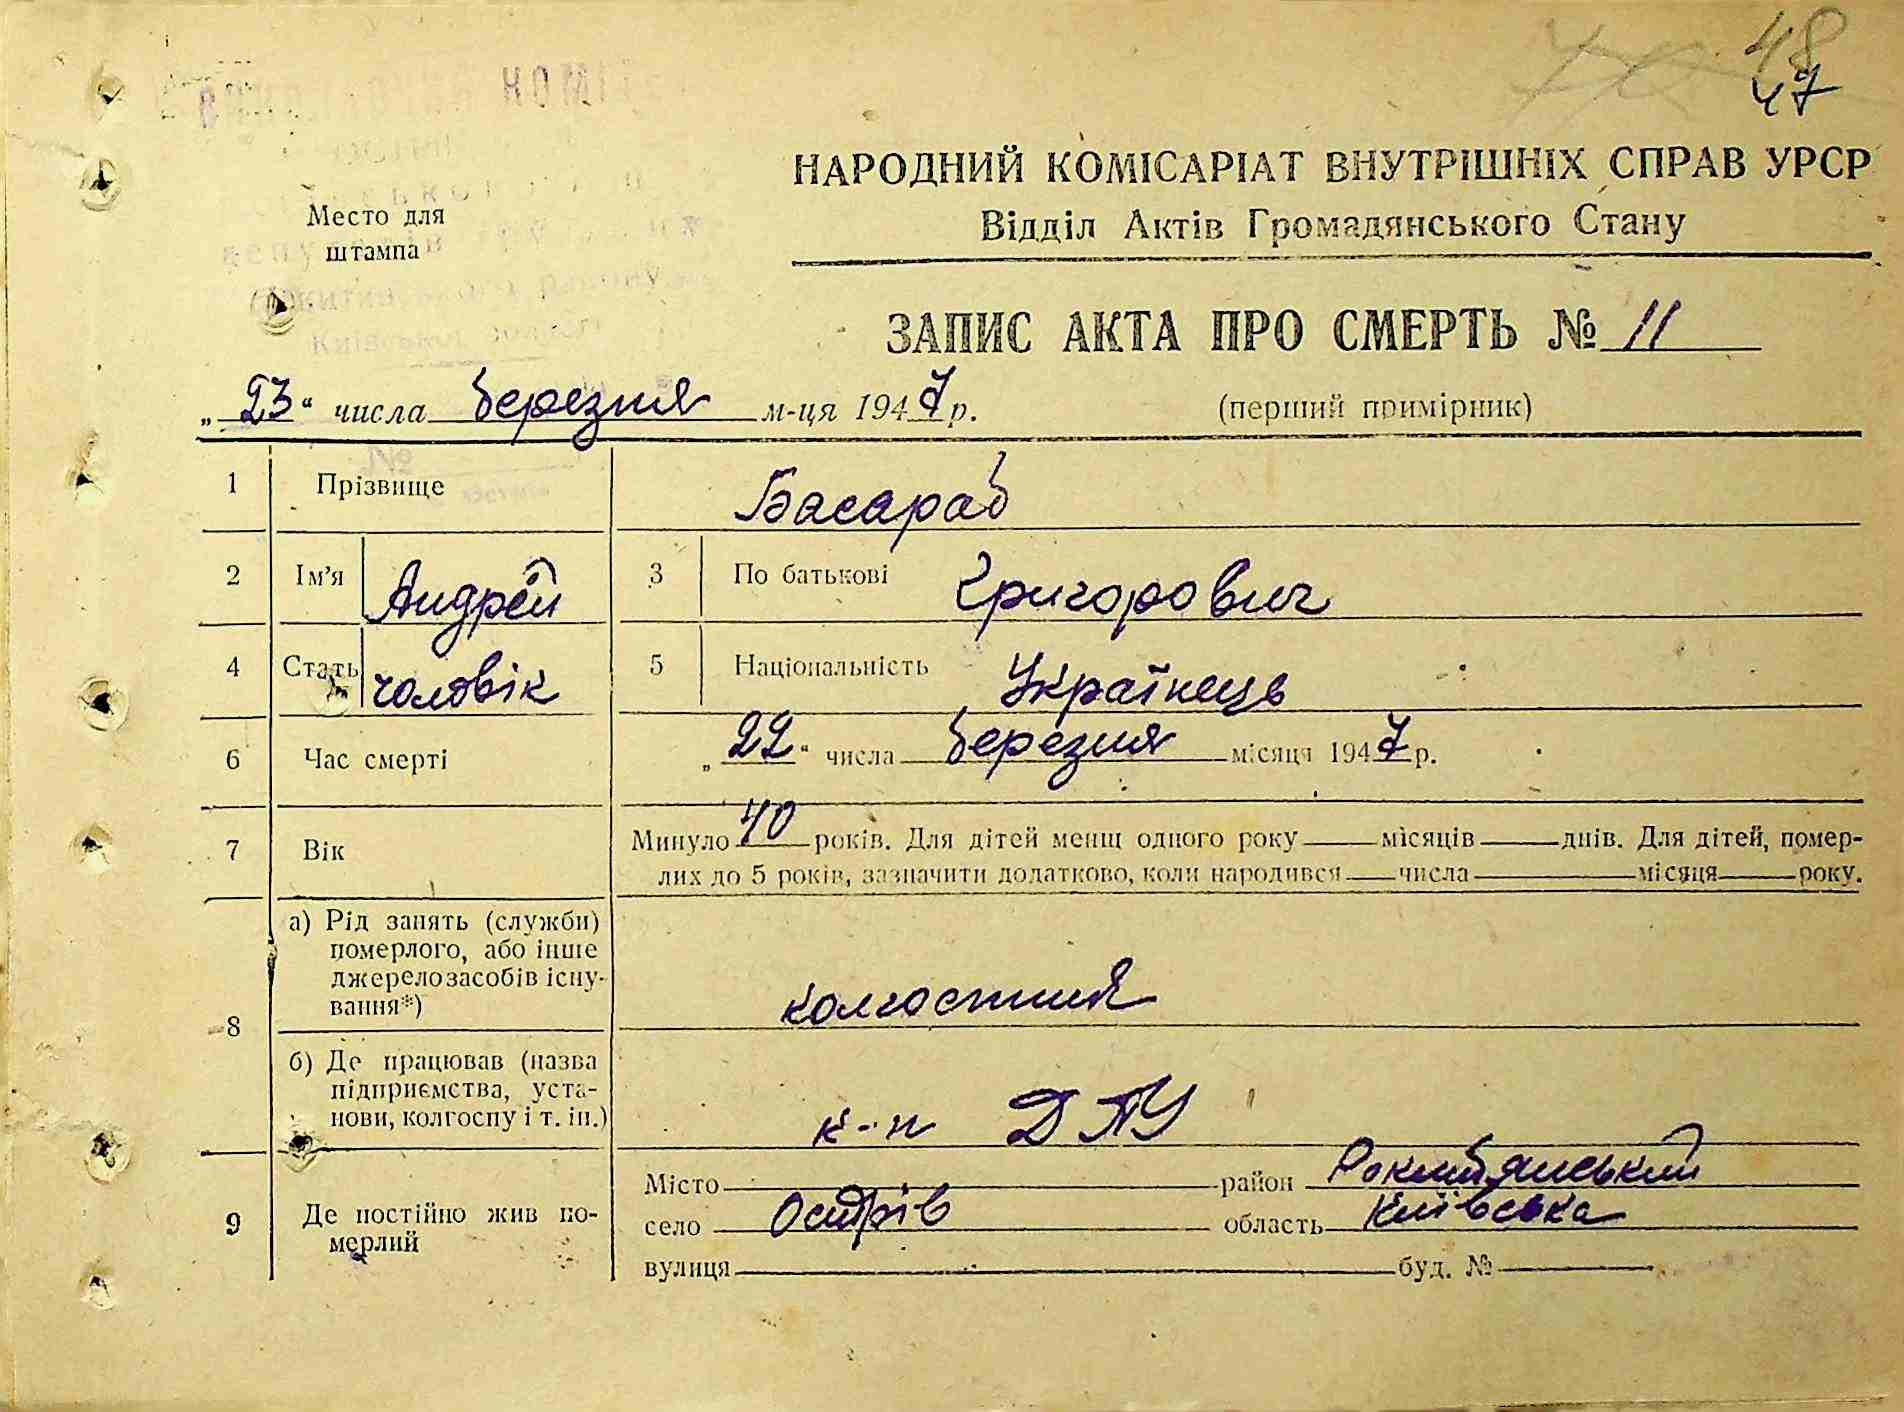 48
47
НАРОДНИЙ КОМІСАРІАТ ВНУТРІШНІХ СПРАВ УРСР
Відділ Актів Громадянського Стану
Место для
штампа
Київської
ЗАПИС АКТА ПРО СМЕРТЬ № 11
„23“ числа березня м-ця 1947 р. (перший примірник)
№
1 Прізвище Басараб
2 Ім'я Андрей 3 По батькові Григорович
4 Стать чоловік 5 Національність Українець
6 Час смерті „22“ числа березня місяця 1947 р.
7 Вік Минуло 40 років. Для дітей менщ одного року місяців днів. Для дітей, помер-
лих до 5 років, зазначити додатково, коли народився числа місяця року.
8 а) Рід занять (служби)
померлого, або інше
джерело засобів існу-
вання*)
колгоспник
б) Де працював (назва
підприємства, уста-
нови, колгоспу і т. ін.)
к-п ДПУ
9 Де постійно жив по-
мерлий
Місто район Рокитянський
село Острів область Київська
вулиця буд. №